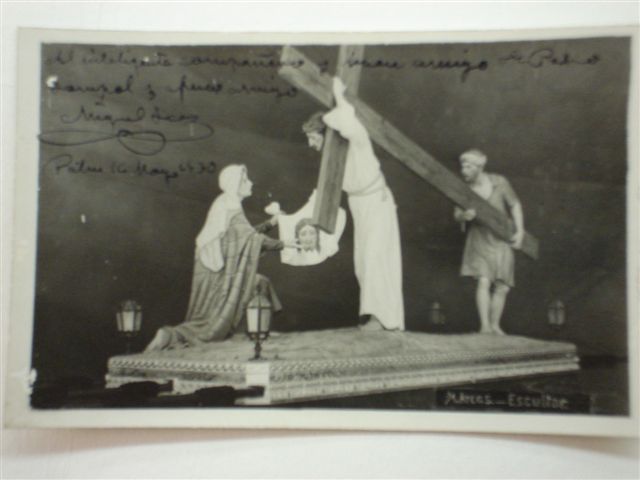 Al inteligente compañero y buen amigo Dn Pedro
y afmo amigo
Miguel Arcas
16 Mayo 1930
M. Arcas - Escultor